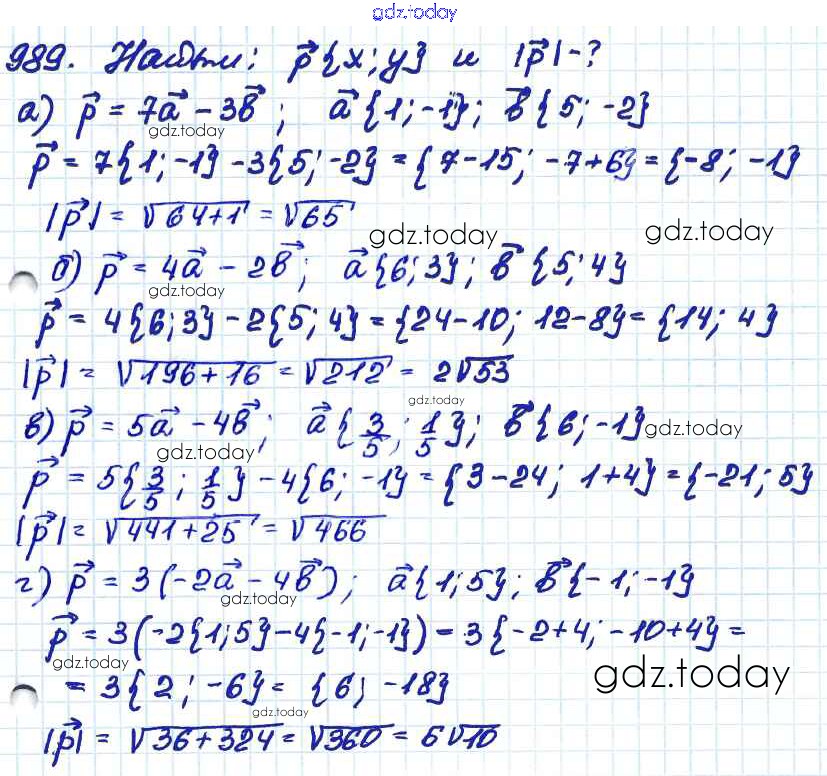 gdz.today
989. Найти: p⃗{x; y} и |p⃗| - ?
а) p⃗ = 7a⃗ - 3b⃗; a⃗{1; -1}; b⃗{5; -2}
gdz.today
p⃗ = 7{1; -1} - 3{5; -2} = {7 - 15; -7 + 6} = {-8; -1}
|p⃗| = √(64 + 1) = √65
gdz.today gdz.today
б) p⃗ = 4a⃗ - 2b⃗; a⃗{6; 3}; b⃗{5; 4}
gdz.today
p⃗ = 4{6; 3} - 2{5; 4} = {24 - 10; 12 - 8} = {14; 4}
|p⃗| = √(196 + 16) = √212 = 2√53
gdz.today
в) p⃗ = 5a⃗ - 4b⃗; a⃗{3/5; 1/5}; b⃗{6; -1}
gdz.today gdz.today
p⃗ = 5{3/5; 1/5} - 4{6; -1} = {3 - 24; 1 + 4} = {-21; 5}
|p⃗| = √(441 + 25) = √466
г) p⃗ = 3(-2a⃗ - 4b⃗); a⃗{1; 5}; b⃗{-1; -1}
gdz.today
p⃗ = 3(-2{1; 5} - 4{-1; -1}) = 3{-2 + 4; -10 + 4} =
gdz.today gdz.today
= 3{2; -6} = {6; -18}
gdz.today
|p⃗| = √(36 + 324) = √360 = 6√10